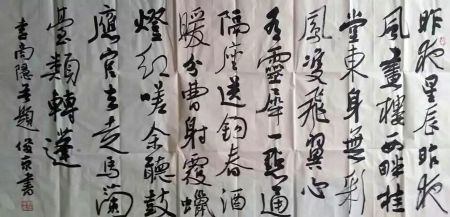 昨夜星辰昨夜
風畫樓西畔桂
堂東身無彩
鳳雙飛翼心
有靈犀一點通
隔座送鉤春酒
暖分曹射覆蠟
燈紅嗟余聽鼓
應官去走馬蘭
臺類轉蓬
李商隱無題 書